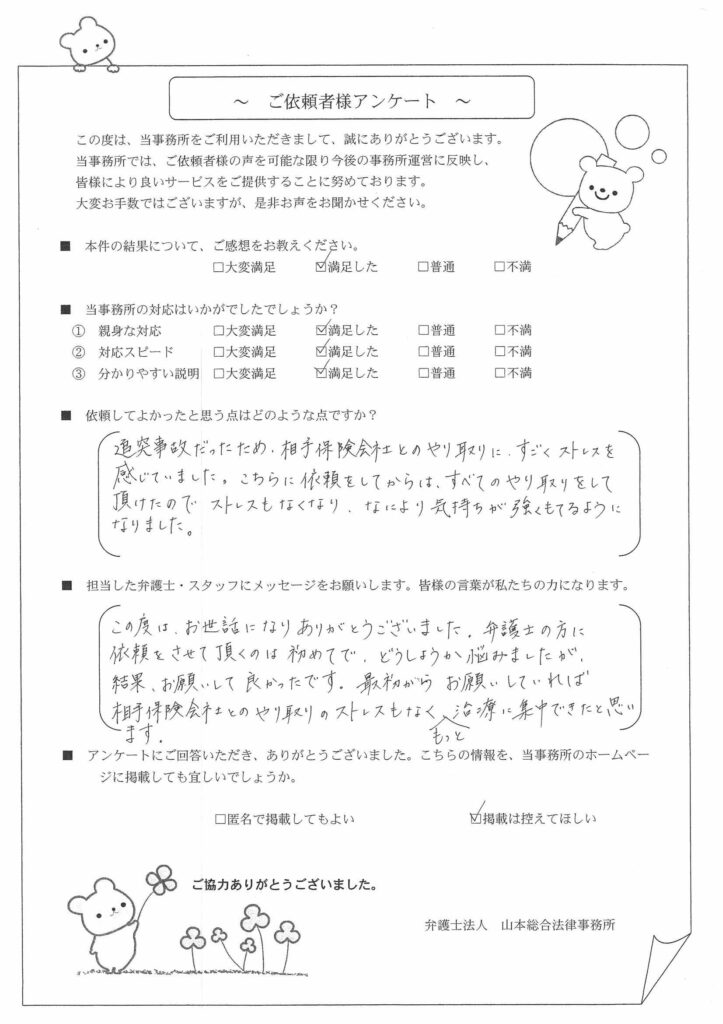 ～ ご依頼者様アンケート ～
この度は、当事務所をご利用いただきまして、誠にありがとうございます。
当事務所では、ご依頼者様の声を可能な限り今後の事務所運営に反映し、
皆様により良いサービスをご提供することに努めております。
大変お手数ではございますが、是非お声をお聞かせください。
■ 本件の結果について、ご感想をお教えください。
□大変満足 ☑満足した □普通 □不満
■ 当事務所の対応はいかがでしたでしょうか？
① 親身な対応 □大変満足 ☑満足した □普通 □不満
② 対応スピード □大変満足 ☑満足した □普通 □不満
③ 分かりやすい説明 □大変満足 ☑満足した □普通 □不満
■ 依頼してよかったと思う点はどのような点ですか？
追突事故だったため、相手保険会社とのやり取りに、すごくストレスを
感じていました。こちらに依頼をしてからは、すべてのやり取りをして
頂けたので ストレスもなくなり、なにより気持ちが強くもてるように
なりました。
■ 担当した弁護士・スタッフにメッセージをお願いします。皆様の言葉が私たちの力になります。
この度は、お世話になりありがとうございました。弁護士の方に
依頼をさせて頂くのは初めてで、どうしようか悩みましたが、
結果、お願いして良かったです。最初から お願いしていれば
相手保険会社とのやり取りのストレスもなく、もっと治療に集中できたと思い
ます。
■ アンケートにご回答いただき、ありがとうございました。こちらの情報を、当事務所のホームペー
ジに掲載しても宜しいでしょうか。
□匿名で掲載してもよい ☑掲載は控えてほしい
ご協力ありがとうございました。
弁護士法人 山本総合法律事務所